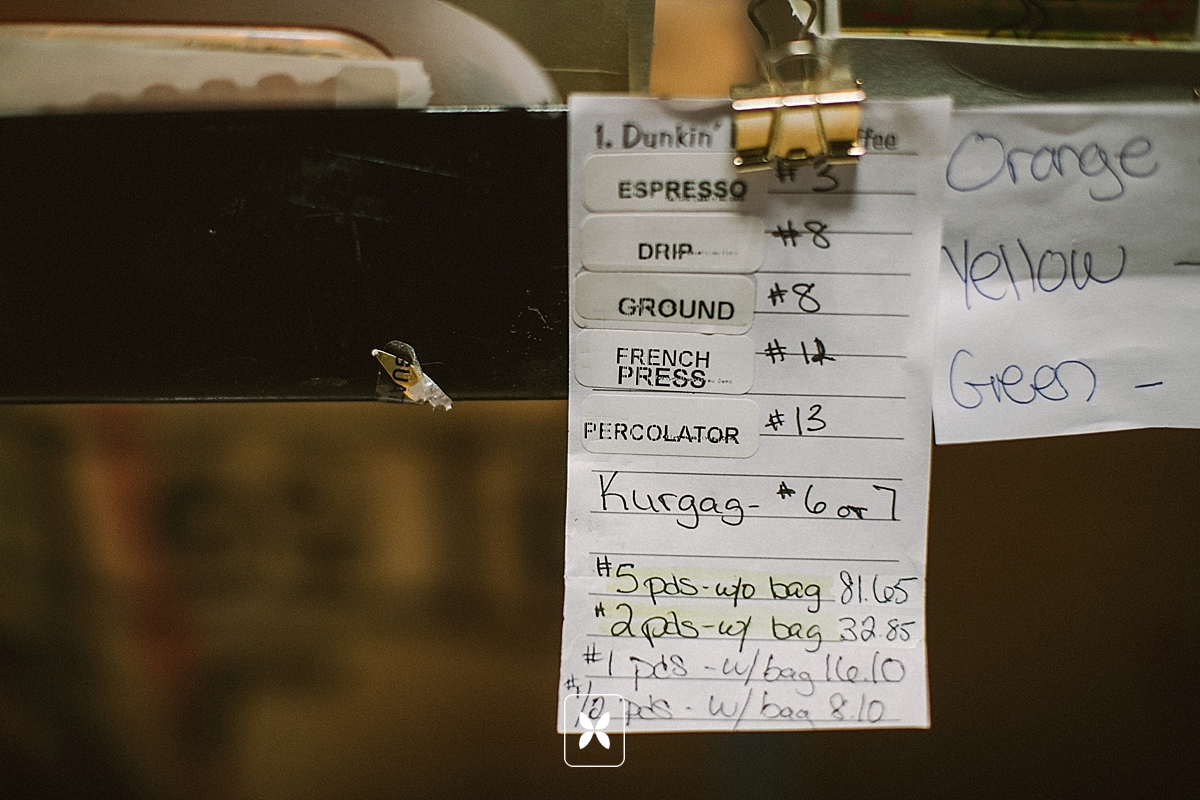 1. Dunkin' ffee
ESPRESSO #3
DRIP #8
GROUND #8
FRENCH
PRESS #12
PERCOLATOR #13
Kurgag- #6 or 7
#5 pds-w/o bag 81.65
#2 pds-w/ bag 32.85
#1 pds - w/bag 16.10
#1/2 pds - w/ bag 8.10
Orange
Yellow -
Green -